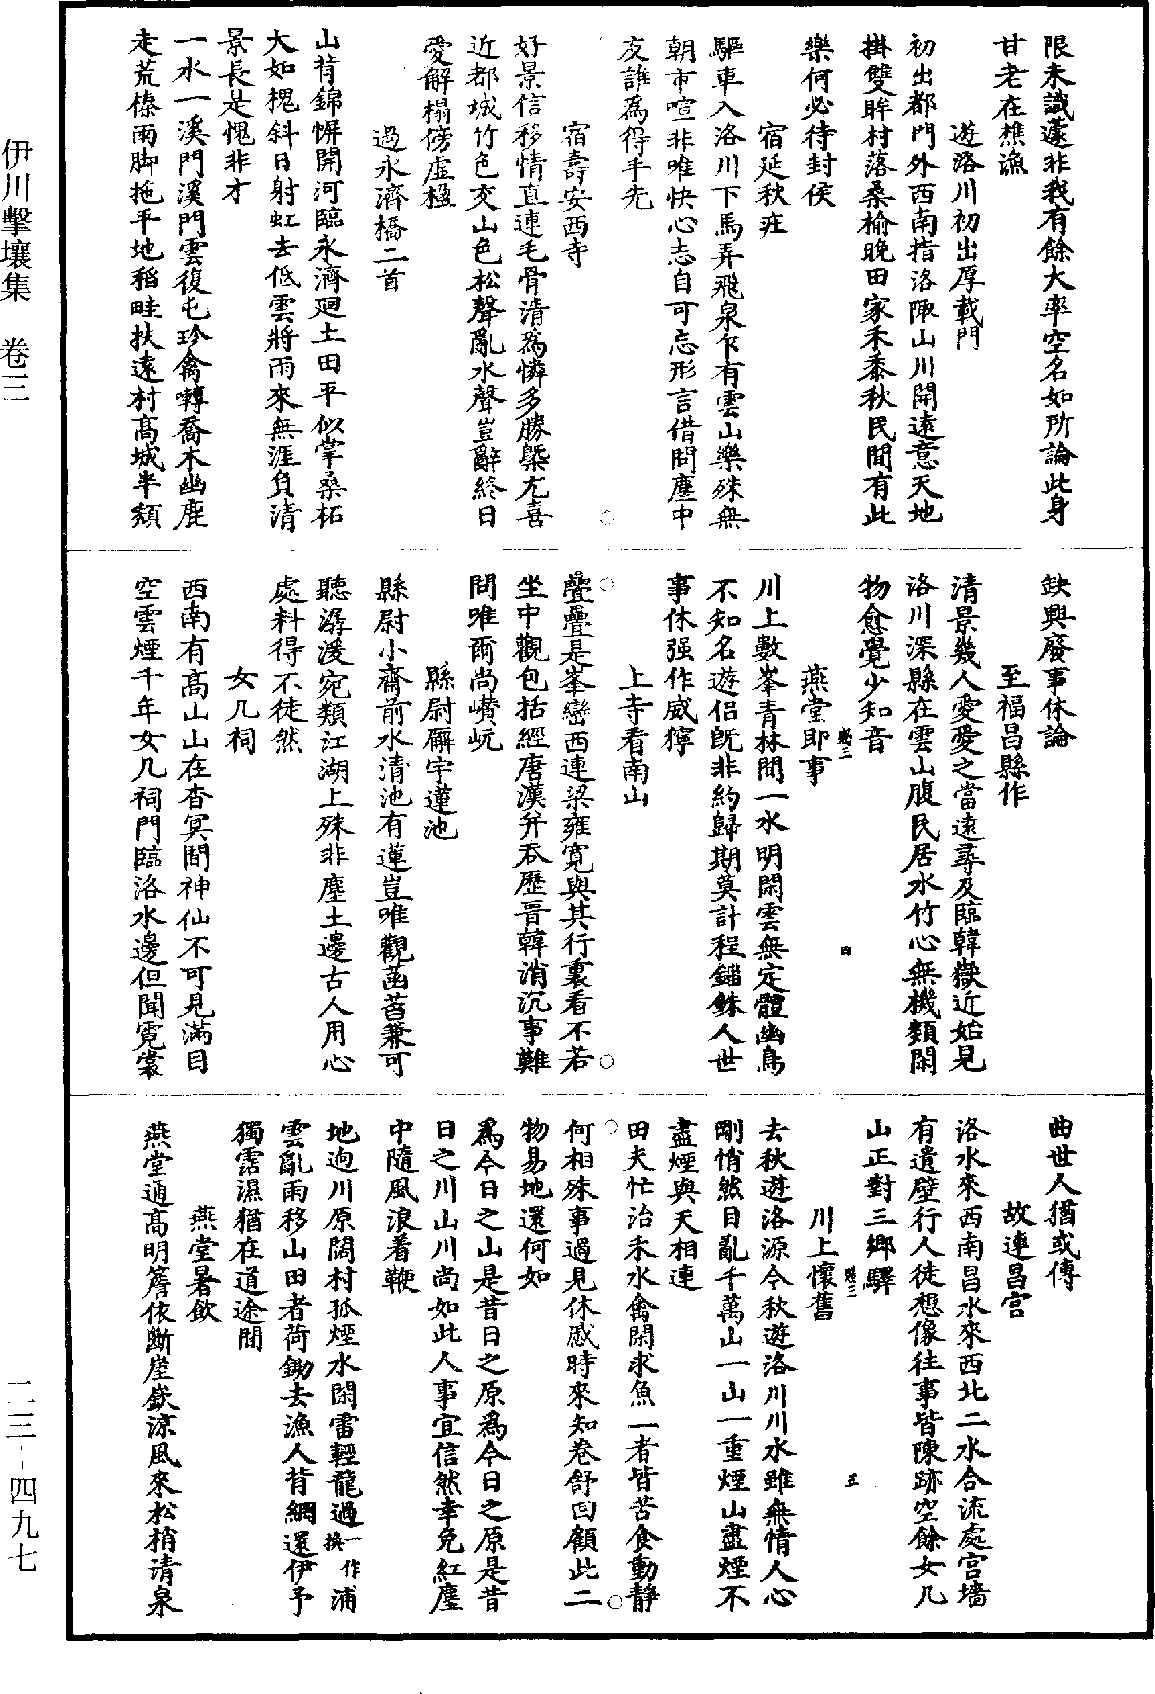 限未識蘧非我有餘大率空名如所論此身
甘老在樵漁
遊洛川初出厚載門
初出都門外西南指洛陬山川開遠意天地
掛雙眸村落桑榆晚田家禾黍秋民間有此
樂何必待封侯
宿延秋庄
驅車入洛川下馬弄飛泉乍有雲山樂殊無
朝市喧非唯快心志自可忘形言借問塵中
友誰為得手先
宿壽安西寺
好景信移情直連毛骨清為憐多勝槩尤喜
近都城竹色交山色松聲亂水聲豈辭終日
愛解榻傍虛楹
過永濟橋二首
山背錦幈開河臨永濟廻土田平似掌桑柘
大如槐斜日射虹去低雲將雨來無涯負清
景長是愧非才
一水一溪門溪門雲復屯珍禽囀喬木幽鹿
走荒榛雨脚拖平地稻畦扶遠村高城半頹
缺興廢事休論
至福昌縣作
清景幾人愛愛之當遠尋及臨韓嶽近始見
洛川深縣在雲山腹民居水竹心無機類閑
物愈覺少知音
燕堂即事
川上數峯青林間一水明閑雲無定體幽鳥
不知名遊侶旣非約歸期莫計程錙銖人世
事休强作威獰
上寺看南山
疊疊是峯巒西連梁雍寛與其行裏看不若
坐中觀包括經唐漢弁吞歷晋韓消沉事難
問唯爾尚巑岏
縣尉廨宇蓮池
縣尉小齋前水清池有蓮豈唯觀菡萏兼可
聽潺湲宛類江湖上殊非塵土邊古人用心
處料得不徒然
女几祠
西南有高山山在杳冥間神仙不可見滿目
空雲煙千年女几祠門臨洛水邊但聞霓裳
曲世人猶或傳
故連昌宫
洛水來西南昌水來西北二水合流處宫墻
有遺壁行人徒想像往事皆陳跡空餘女几
山正對三鄉驛
川上懷舊
去秋遊洛源今秋遊洛川川水雖無情人心
剛悄然目亂千萬山一山一重煙山盡煙不
盡煙與天相連
田夫忙治禾水禽閑求魚二者皆苦食動靜
何相殊事過見休慼時來知卷舒囙顧此二
物易地還何如
為今日之山是昔日之原為今日之原是昔
日之川山川尚如此人事宜信然幸免紅塵
中隨風浪着鞭
地逈川原闊村孤煙水閑雷輕龍過一作換浦
雲亂雨移山田者荷鋤去漁人背網還伊予
獨霑濕猶在道途間
燕堂暑飲
燕堂通高明簷依斷崖嶔涼風來松梢清泉
卷三
四
卷三
五
伊川擊壤集　卷三
二三－四九七